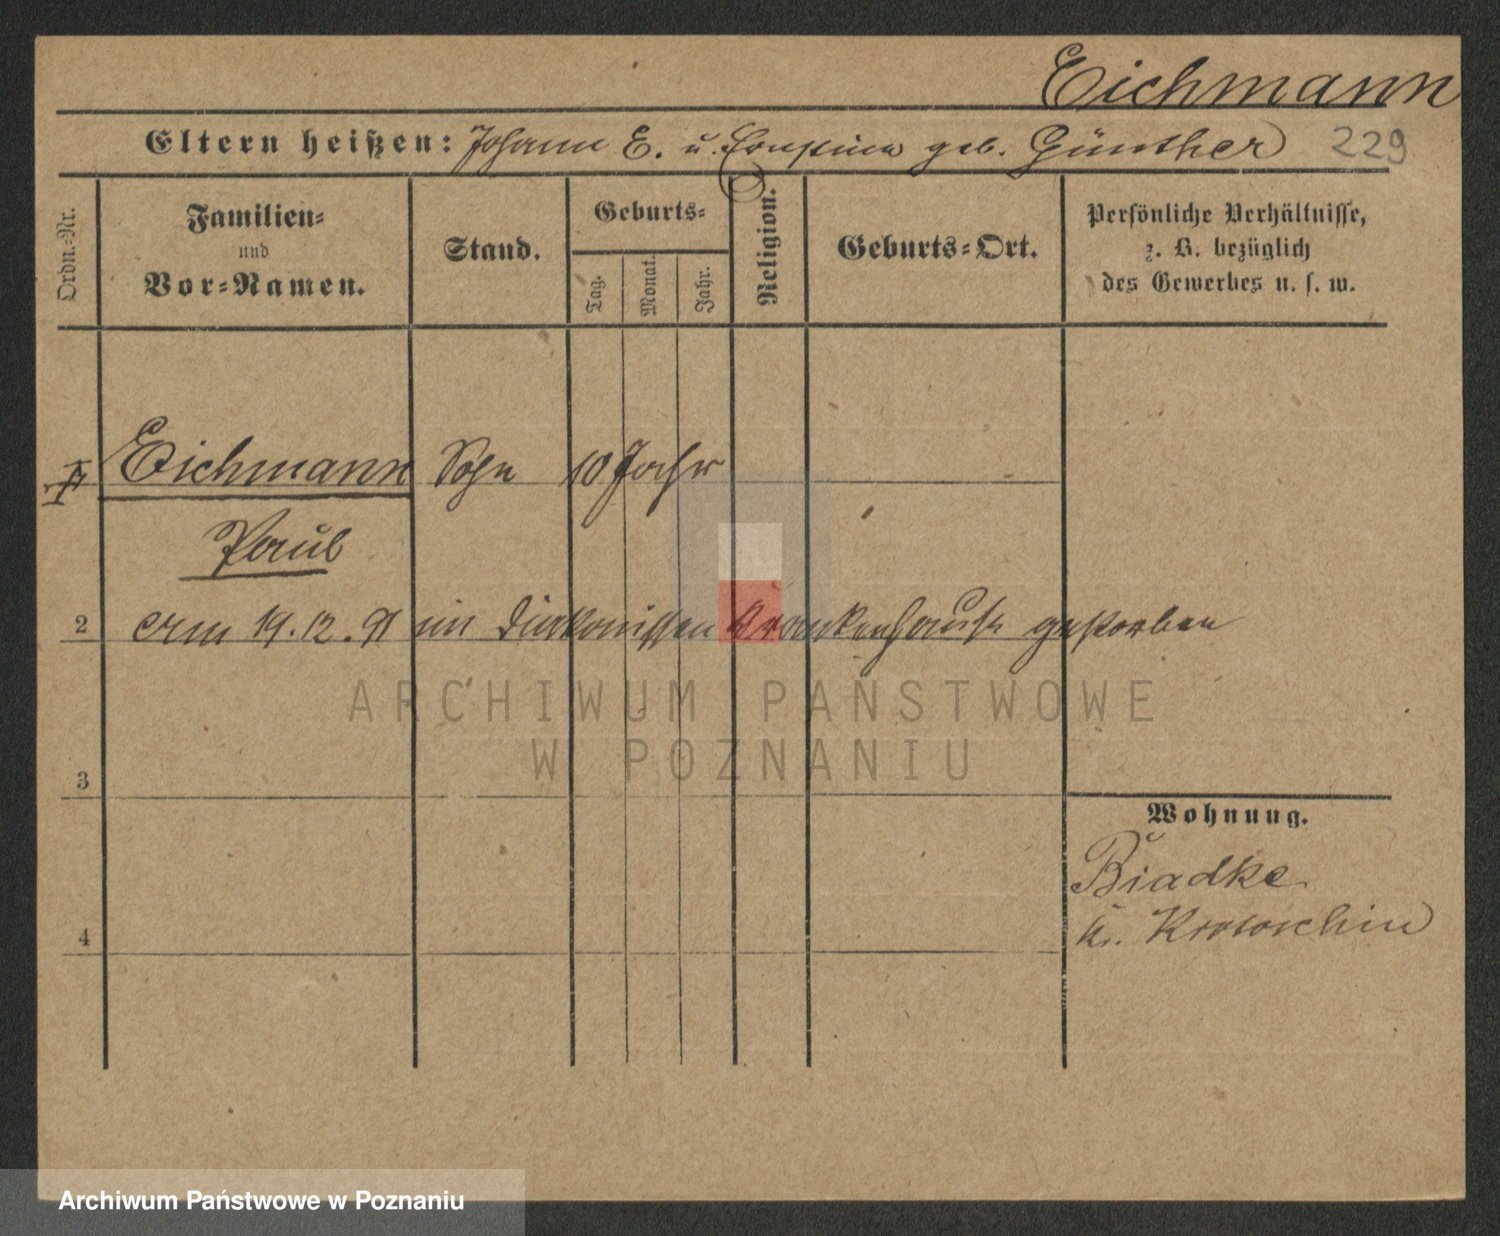 Eichmann
Eltern heißen: Johann E. u. geb. Günther 229
Ordn.-Nr.
Familien-
und
Vor-Namen.
Stand.
Geburts-
Tag.
Monat.
Jahr.
Religion.
Geburts-Ort.
Persönliche Verhältnisse,
z. B. bezüglich
des Gewerbes u. s. w.
Eichmann Sohn 10 Jahr
Paul
2 am 19.12.91 im Diakonissen Krankenhause gestorben
ARCHIWUM PAŃSTWOWE
W POZNANIU
3
Wohnung.
Biadke
Kr. Krotoschin
4
Archiwum Państwowe w Poznaniu